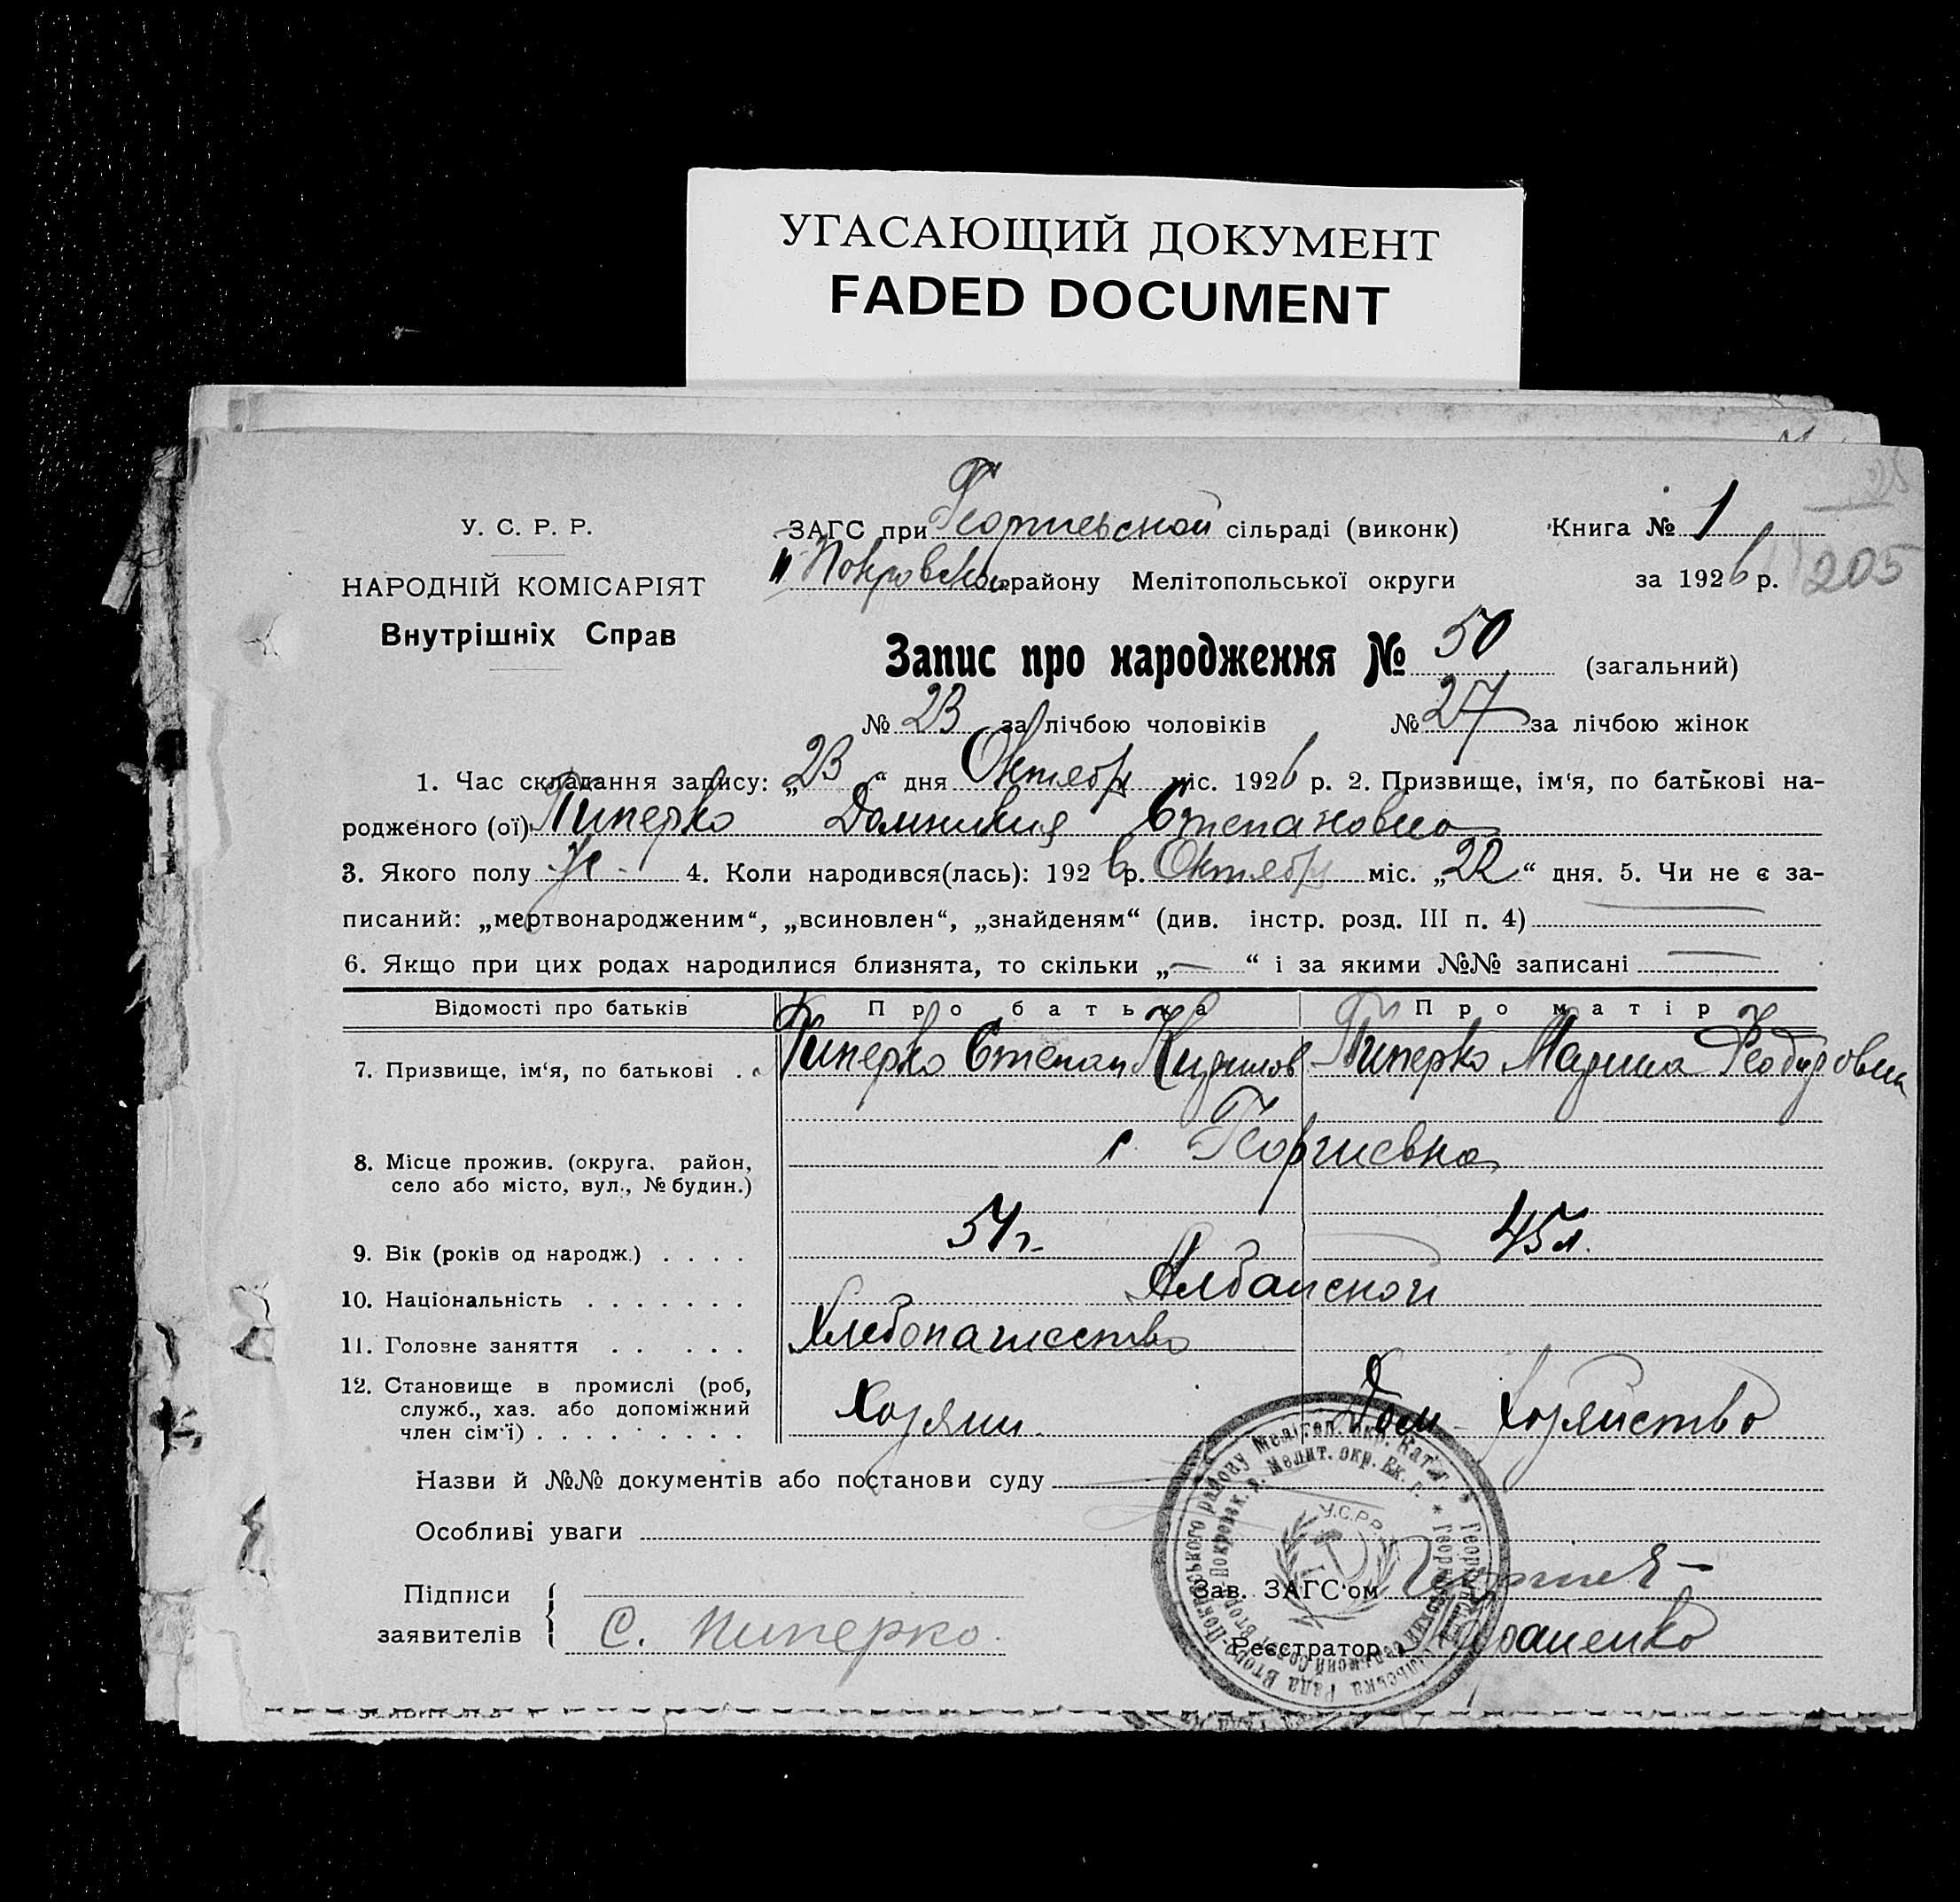 УГАСАЮЩИЙ ДОКУМЕНТ
FADED DOCUMENT
У. С. Р. Р.
НАРОДНІЙ КОМІСАРІЯТ
Внутрішніх Справ
ЗАГС при Георгиевской сільраді (виконк)
II Покровском району Мелітопольської округи
Книга № 1
за 1926 р.
205
Запис про народження № 50 (загальний)
№ 23 за лічбою чоловіків № 27 за лічбою жінок
1. Час складання запису: „23“ дня Октября міс. 1926 р. 2. Призвище, ім'я, по батькові на-
родженого (ої) Пиперко Домникия Степановна
3. Якого полу ж. 4. Коли народився(лась): 1926 р. Октября міс. „22“ дня. 5. Чи не є за-
писаний: „мертвонародженим“, „всиновлен“, „знайденям“ (див. інстр. розд. III п. 4)
6. Якщо при цих родах народилися близнята, то скільки „—“ і за якими №№ записані —
Відомості про батьків Про батька Про матір
7. Призвище, ім'я, по батькові . . Пиперко Степан Кирилов Пиперко Мариша Феодуровна
8. Місце прожив. (округа, район,
село або місто, вул., № будин.)
с Георгиевка
9. Вік (років од народж.) . . . . 51 г. 45 л.
10. Національність . . . . . . . Албанской
11. Головне заняття . . . . . Хлебопашество
12. Становище в промислі (роб,
служб., хаз. або допоміжний
член сім'ї) . . . . . . . . . Хозяин Дом Хозяйство
Назви й №№ документів або постанови суду
Особливі уваги
У.С.Р.Р.
Підписи
заявителів
С. Пиперко.
Зав. ЗАГС'ом
Реєстратор